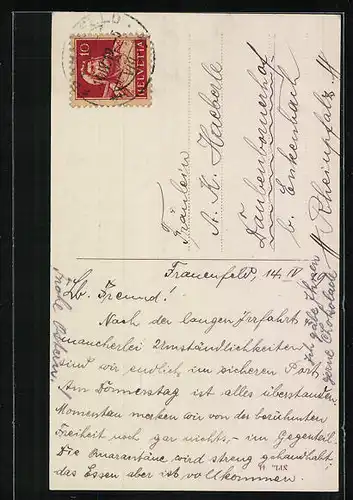 10
HELVETIA
Fräulein
A. K. Haeberle
Daubenbornerhof
b. Enkenbach
Rheinpfalz
Frauenfeld, 14. IV
Lb. Freund!
Nach der langen Irrfahrt
mancherlei Umständlichkeiten
sind wir endlich im sicheren Port.
Am Donnerstag ist alles überstanden.
Momentan merken wir von der berühmten
Freiheit noch gar nichts, im Gegenteil.
Die Quarantäne wird streng gehandhabt;
das Essen aber ist vollkommen.